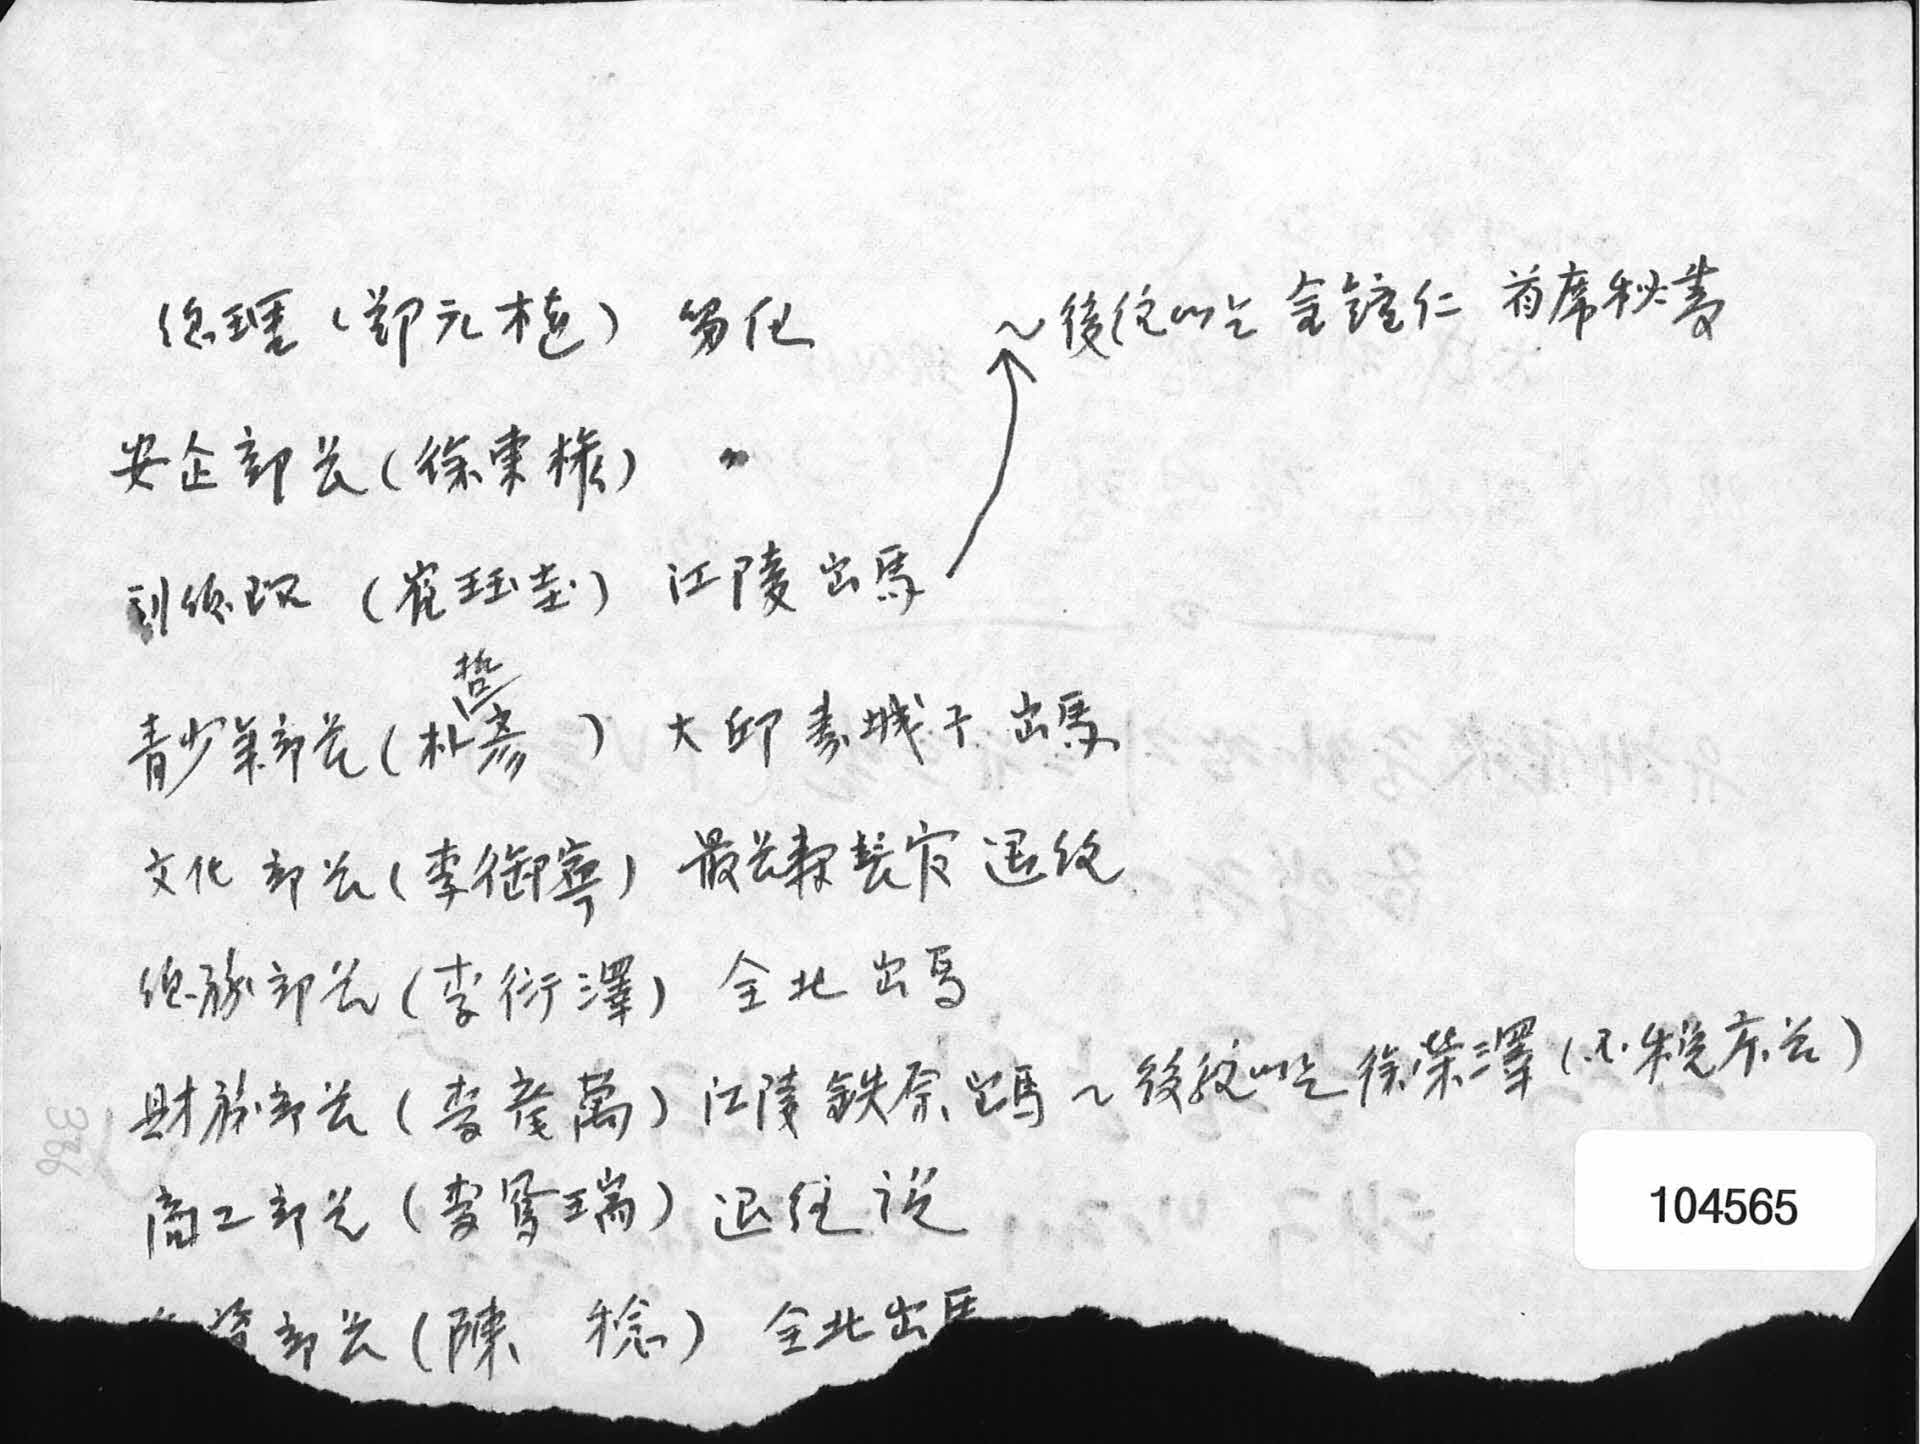 总理 (鄭元植) 勇退 ~ 後任에는 金鍾仁 首席秘書
安企部長 (徐東權) 〃
副總理 (崔珏圭) 江陵 出馬
青少年部長 (朴哲彦) 大邱 壽城구 出馬
文化部長 (李御寧) 最長壽長官 退任
總務部長 (李衍澤) 全北 出馬
財務部長 (李 萬) 江陵 出馬 ~ 後任에는 徐榮澤 (国税庁長)
商工部長 (李鳳瑞) 退任 説
部長 (陳 稔) 全北 出馬
104565
386